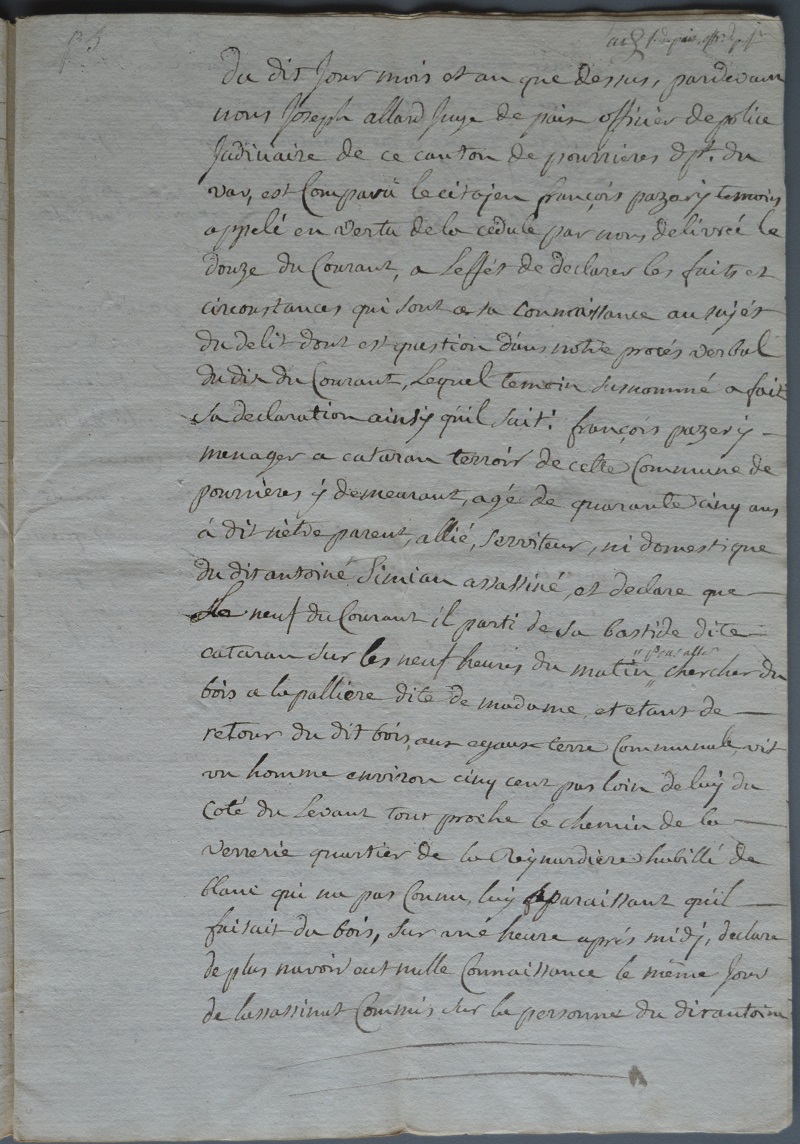 Du dit Jour mois et an que dessus, pardevant
nous Joseph allard Juge de paix officier de police
Judiciaire de ce canton de pourrieres dpt. du
var, est Comparü le citojen françois pazery temoin
appelé en vertu de la cedule par nous delivrée le
douze du Courant, a L'effét de declarer les faits et
circonstances qui sont a sa Connaissance au sujét
du delit dont est question dans notre procés verbal
du dix du Courant, Lequel temoin susnommé a fait
sa declaration ainsy qu'il suit: françois pazery
menager a cataran terroir de cette Commune de
pourrieres ÿ demeurant, agé de quarante cinq ans
á dit n'ètre parent, allié, serviteur, ni domestique
du dit antoine Simian assassiné, et declare que
le neuf du Courant il parti de sa bastide dite
cataran sur les neuf heures du matin pour aller chercher du
bois a la palliere dite de madame, et etant de
retour du dit bois, aux egaux terre Communale, vit
un homme environ cinq cent pas loin de luy du
coté du Levant tout proche le chemin de la
verrerie quartier de la Reynardiere habillé de
blanc qui na pas Connu, luy paraissant qu'il
faisait du bois, sur une heure aprés midj, declare
de plus navoir eut nulle Connaissance le même Jour
de lassassinat Commis sur la personne du dit antoine